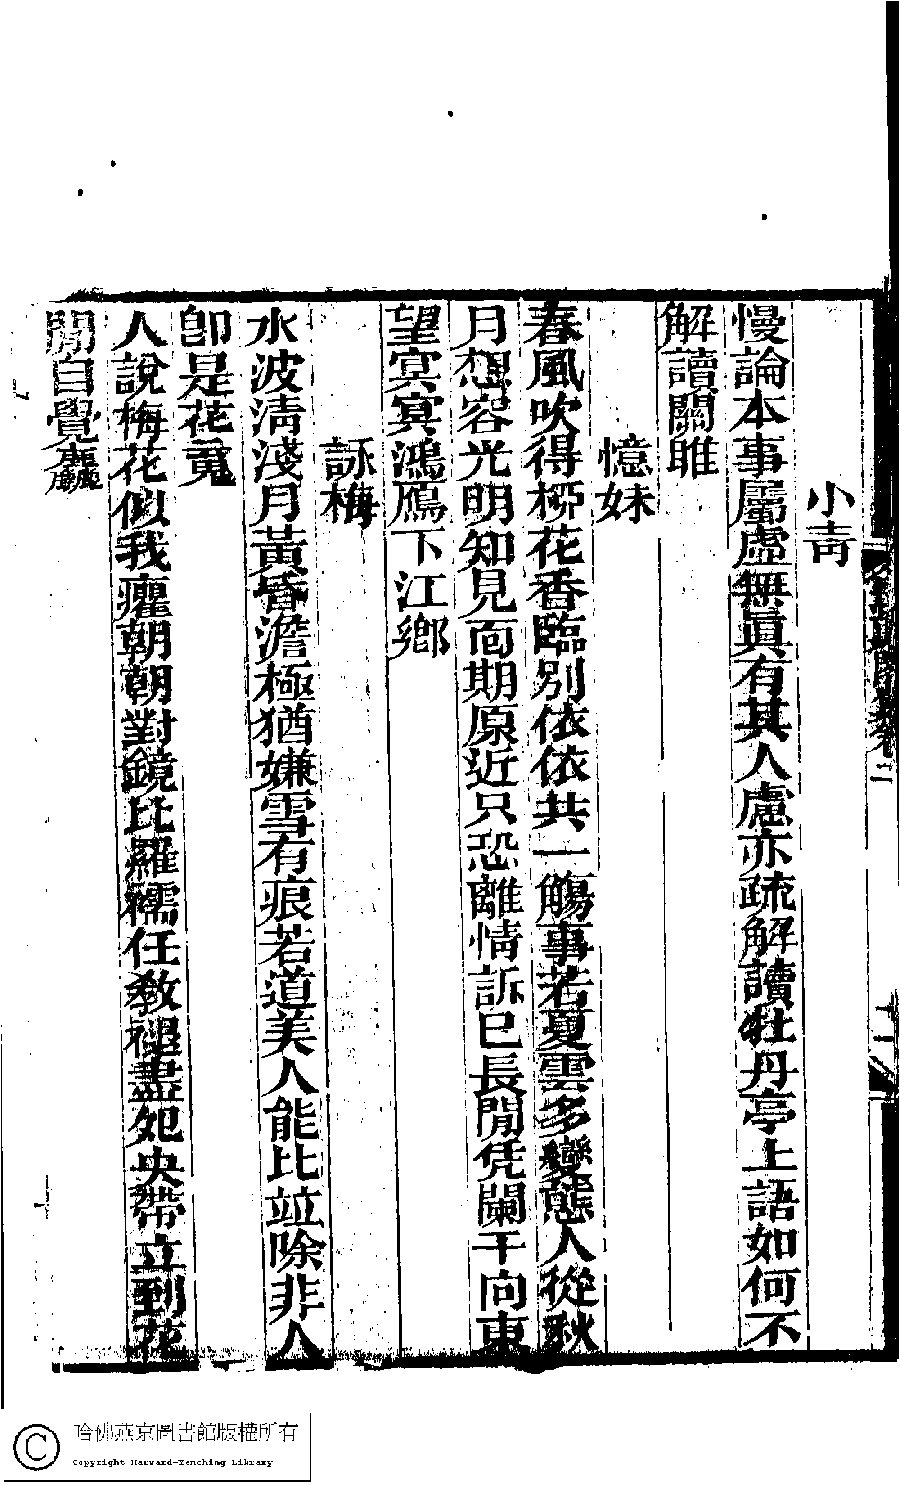 卷二
小青
慢論本事屬虛無眞有其人慮亦疏解讀牡丹亭上語如何不
解讀關雎
憶妹
春風吹得桺花香臨別依依共一觴事若夏雲多變態人從秋
月想容光明知見面期原近只恐離情訴已長閒凭闌干向東
望冥冥鴻鴈下江鄉
詠梅
水波淸淺月黃昏澹極猶嫌雪有痕若道美人能比竝除非人
卽是花䰟
人說梅花似我癯朝朝對鏡比羅襦任敎褪盡夗央帶立到花
閒自覺麤
哈佛燕京圖書館版權所有
Copyright Harvard-Yenching Library